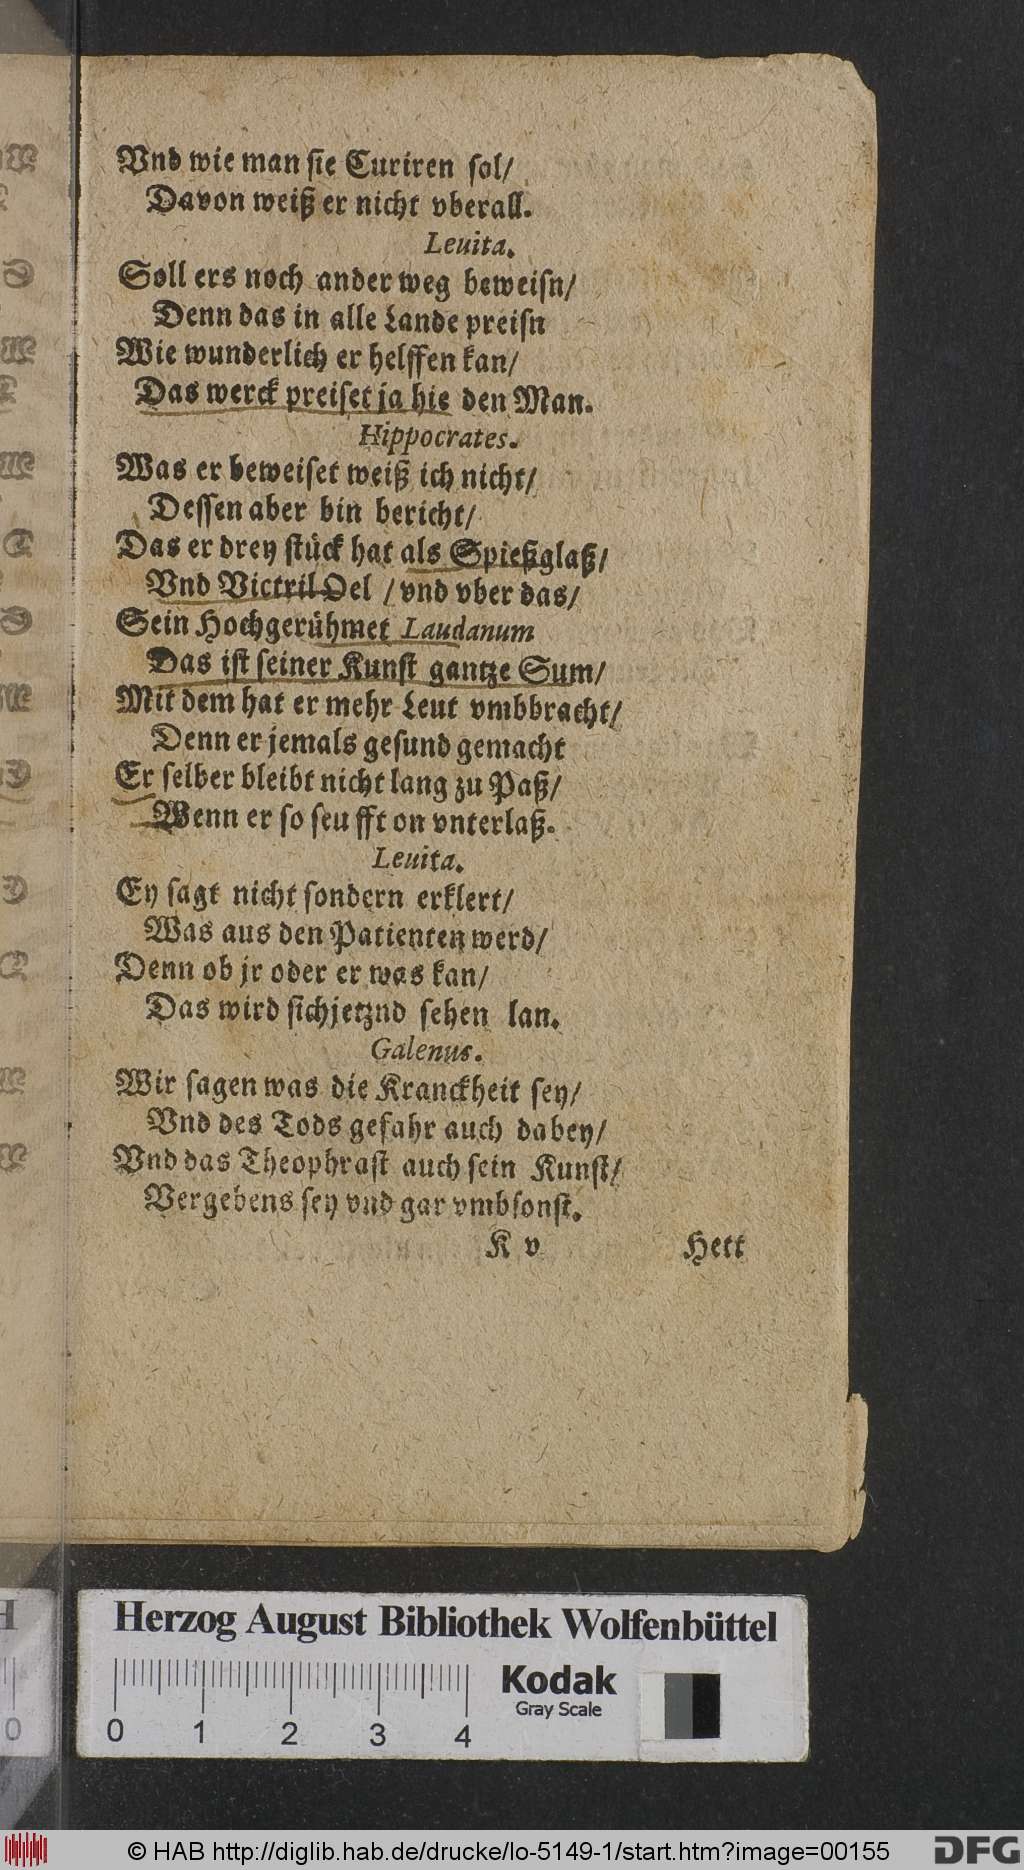 Vnd wie man sie Curiren sol/
Davon weiß er nicht vberall.
Leuita.
Soll ers noch ander weg beweisn/
Denn das in alle Lande preisn
Wie wunderlich er helffen kan/
Das werck preiset ja hie den Man.
Hippocrates.
Was er beweiset weiß ich nicht/
Dessen aber bin bericht/
Das er drey stück hat als Spießglaß/
Vnd Victril Oel / vnd vber das/
Sein Hochgerühmet Laudanum
Das ist seiner Kunst gantze Sum/
Mit dem hat er mehr Leut vmbbracht/
Denn er jemals gesund gemacht
Er selber bleibt nicht lang zu Paß/
Wenn er so seufft on vnterlaß.
Leuita.
Ey sagt nicht sondern erklert/
Was aus den Patienten werd/
Denn ob jr oder er was kan/
Das wird sich jetznd sehen lan.
Galenus.
Wir sagen was die Kranckheit sey/
Vnd des Tods gefahr auch dabey/
Vnd das Theophrast auch sein Kunst/
Vergebens sey vnd gar vmbsonst.
K v Hett
Herzog August Bibliothek Wolfenbüttel
Kodak
Gray Scale
0 1 2 3 4
© HAB http://diglib.hab.de/drucke/lo-5149-1/start.htm?image=00155 DFG